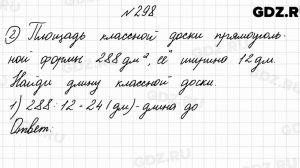 GDZ.RU
№298
② Площадь классной доски прямоуголь-
ной формы 288 дм², её ширина 12 дм.
Найди длину классной доски.
1) 288:12=24 (дм)-длина до
Ответ:
GDZ.RU